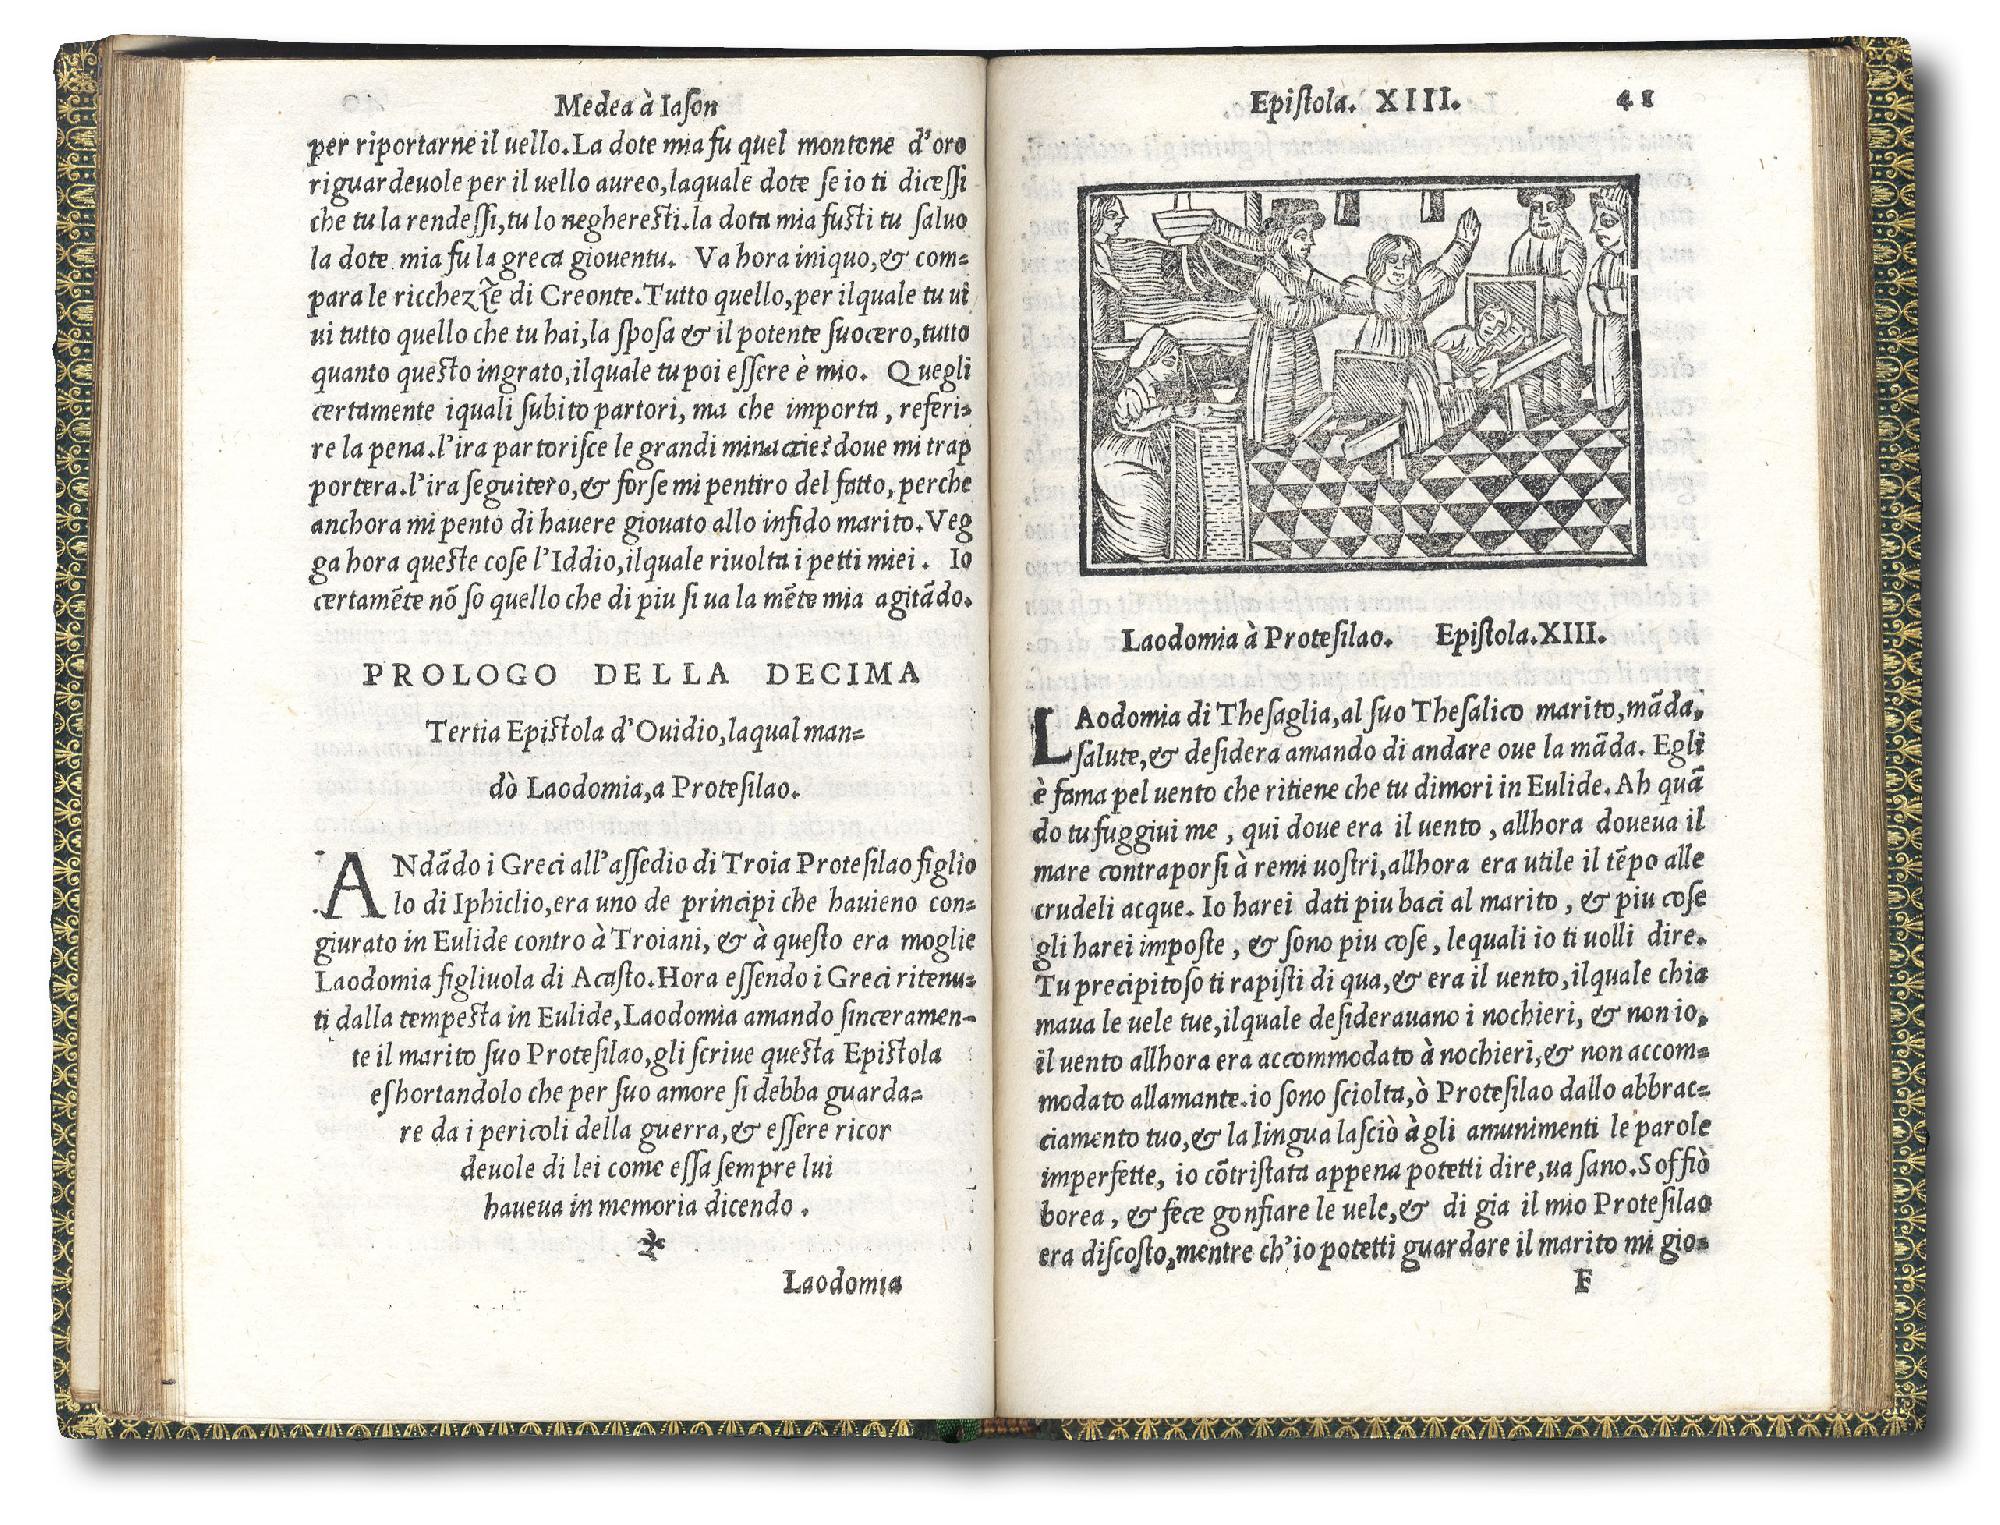 Medea à Iaſon
per riportarne il uello. La dote mia fu quel montone d'oro
riguardeuole per il uello aureo, laquale dote ſe io ti diceſſi
che tu la rendeſſi, tu lo negheresti. la dota mia fusti tu ſaluo
la dote mia fu la greca giouentu. Va hora iniquo, & com=
para le ricchezze di Creonte. Tutto quello, per ilquale tu ui
ui tutto quello che tu hai, la ſpoſa & il potente ſuocero, tutto
quanto questo ingrato, ilquale tu poi eſſere è mio. Quegli
certamente iquali ſubito partori, ma che importa, referi=
re la pena. l'ira partoriſce le grandi minaccie? doue mi trap
portera. l'ira ſeguitero, & forſe mi pentiro del fatto, perche
anchora mi pento di hauere giouato allo infido marito. Veg
ga hora queste coſe l'Iddio, ilquale riuolta i petti miei. Io
certamēte nō ſo quello che di piu ſi ua la mēte mia agitādo.
PROLOGO DELLA DECIMA
Tertia Epistola d'Ouidio, laqual man=
dò Laodomia, a Proteſilao.
ANdādo i Greci all'aſſedio di Troia Proteſilao figlio
lo di Iphiclio, era uno de principi che hauieno con=
giurato in Eulide contro à Troiani, & à queſto era moglie
Laodomia figliuola di Acaſto. Hora eſſendo i Greci ritenu=
ti dalla tempesta in Eulide, Laodomia amando ſinceramen=
te il marito ſuo Proteſilao, gli ſcriue questa Epistola
eshortandolo che per ſuo amore ſi debba guarda=
re da i pericoli della guerra, & eſſere ricor
deuole di lei come eſſa ſempre lui
haueua in memoria dicendo.
Laodomia
Epiſtola. XIII. 41
Laodomia à Proteſilao. Epistola. XIII.
LAodomia di Theſaglia, al ſuo Theſalico marito, māda,
ſalute, & deſidera amando di andare oue la māda. Egli
è fama pel uento che ritiene che tu dimori in Eulide. Ah quā
do tu fuggiui me, qui doue era il uento, allhora doueua il
mare contraporſi à remi uoſtri, allhora era utile il tēpo alle
crudeli acque. Io harei dati piu baci al marito, & piu coſe
gli harei impoſte, & ſono piu coſe, lequali io ti uolli dire.
Tu precipitoſo ti rapiſti di qua, & era il uento, ilquale chia
maua le uele tue, ilquale deſiderauano i nochieri, & non io,
il uento allhora era accommodato à nochieri, & non accom=
modato allamante. io ſono ſciolta, ò Proteſilao dallo abbrac=
ciamento tuo, & la lingua laſciò à gli amunimenti le parole
imperfette, io cōtriſtata appena potetti dire, ua ſano. Soffiò
borea, & fece gonfiare le uele, & di gia il mio Proteſilao
era diſcoſto, mentre ch'io potetti guardare il marito mi gio=
F